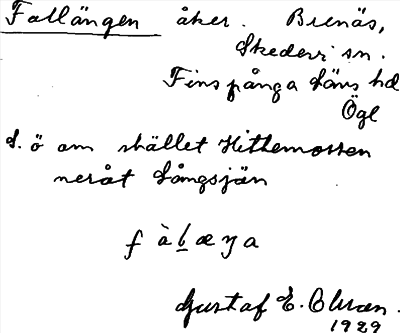 Fallängen åker. Brenäs,
Skedevi sn.
Finspånga läns hd
Ögl
S. ö om stället Hittemossen
neråt Långsjön
f à l æ ŋ a
Gustaf E. Olsson.
1929